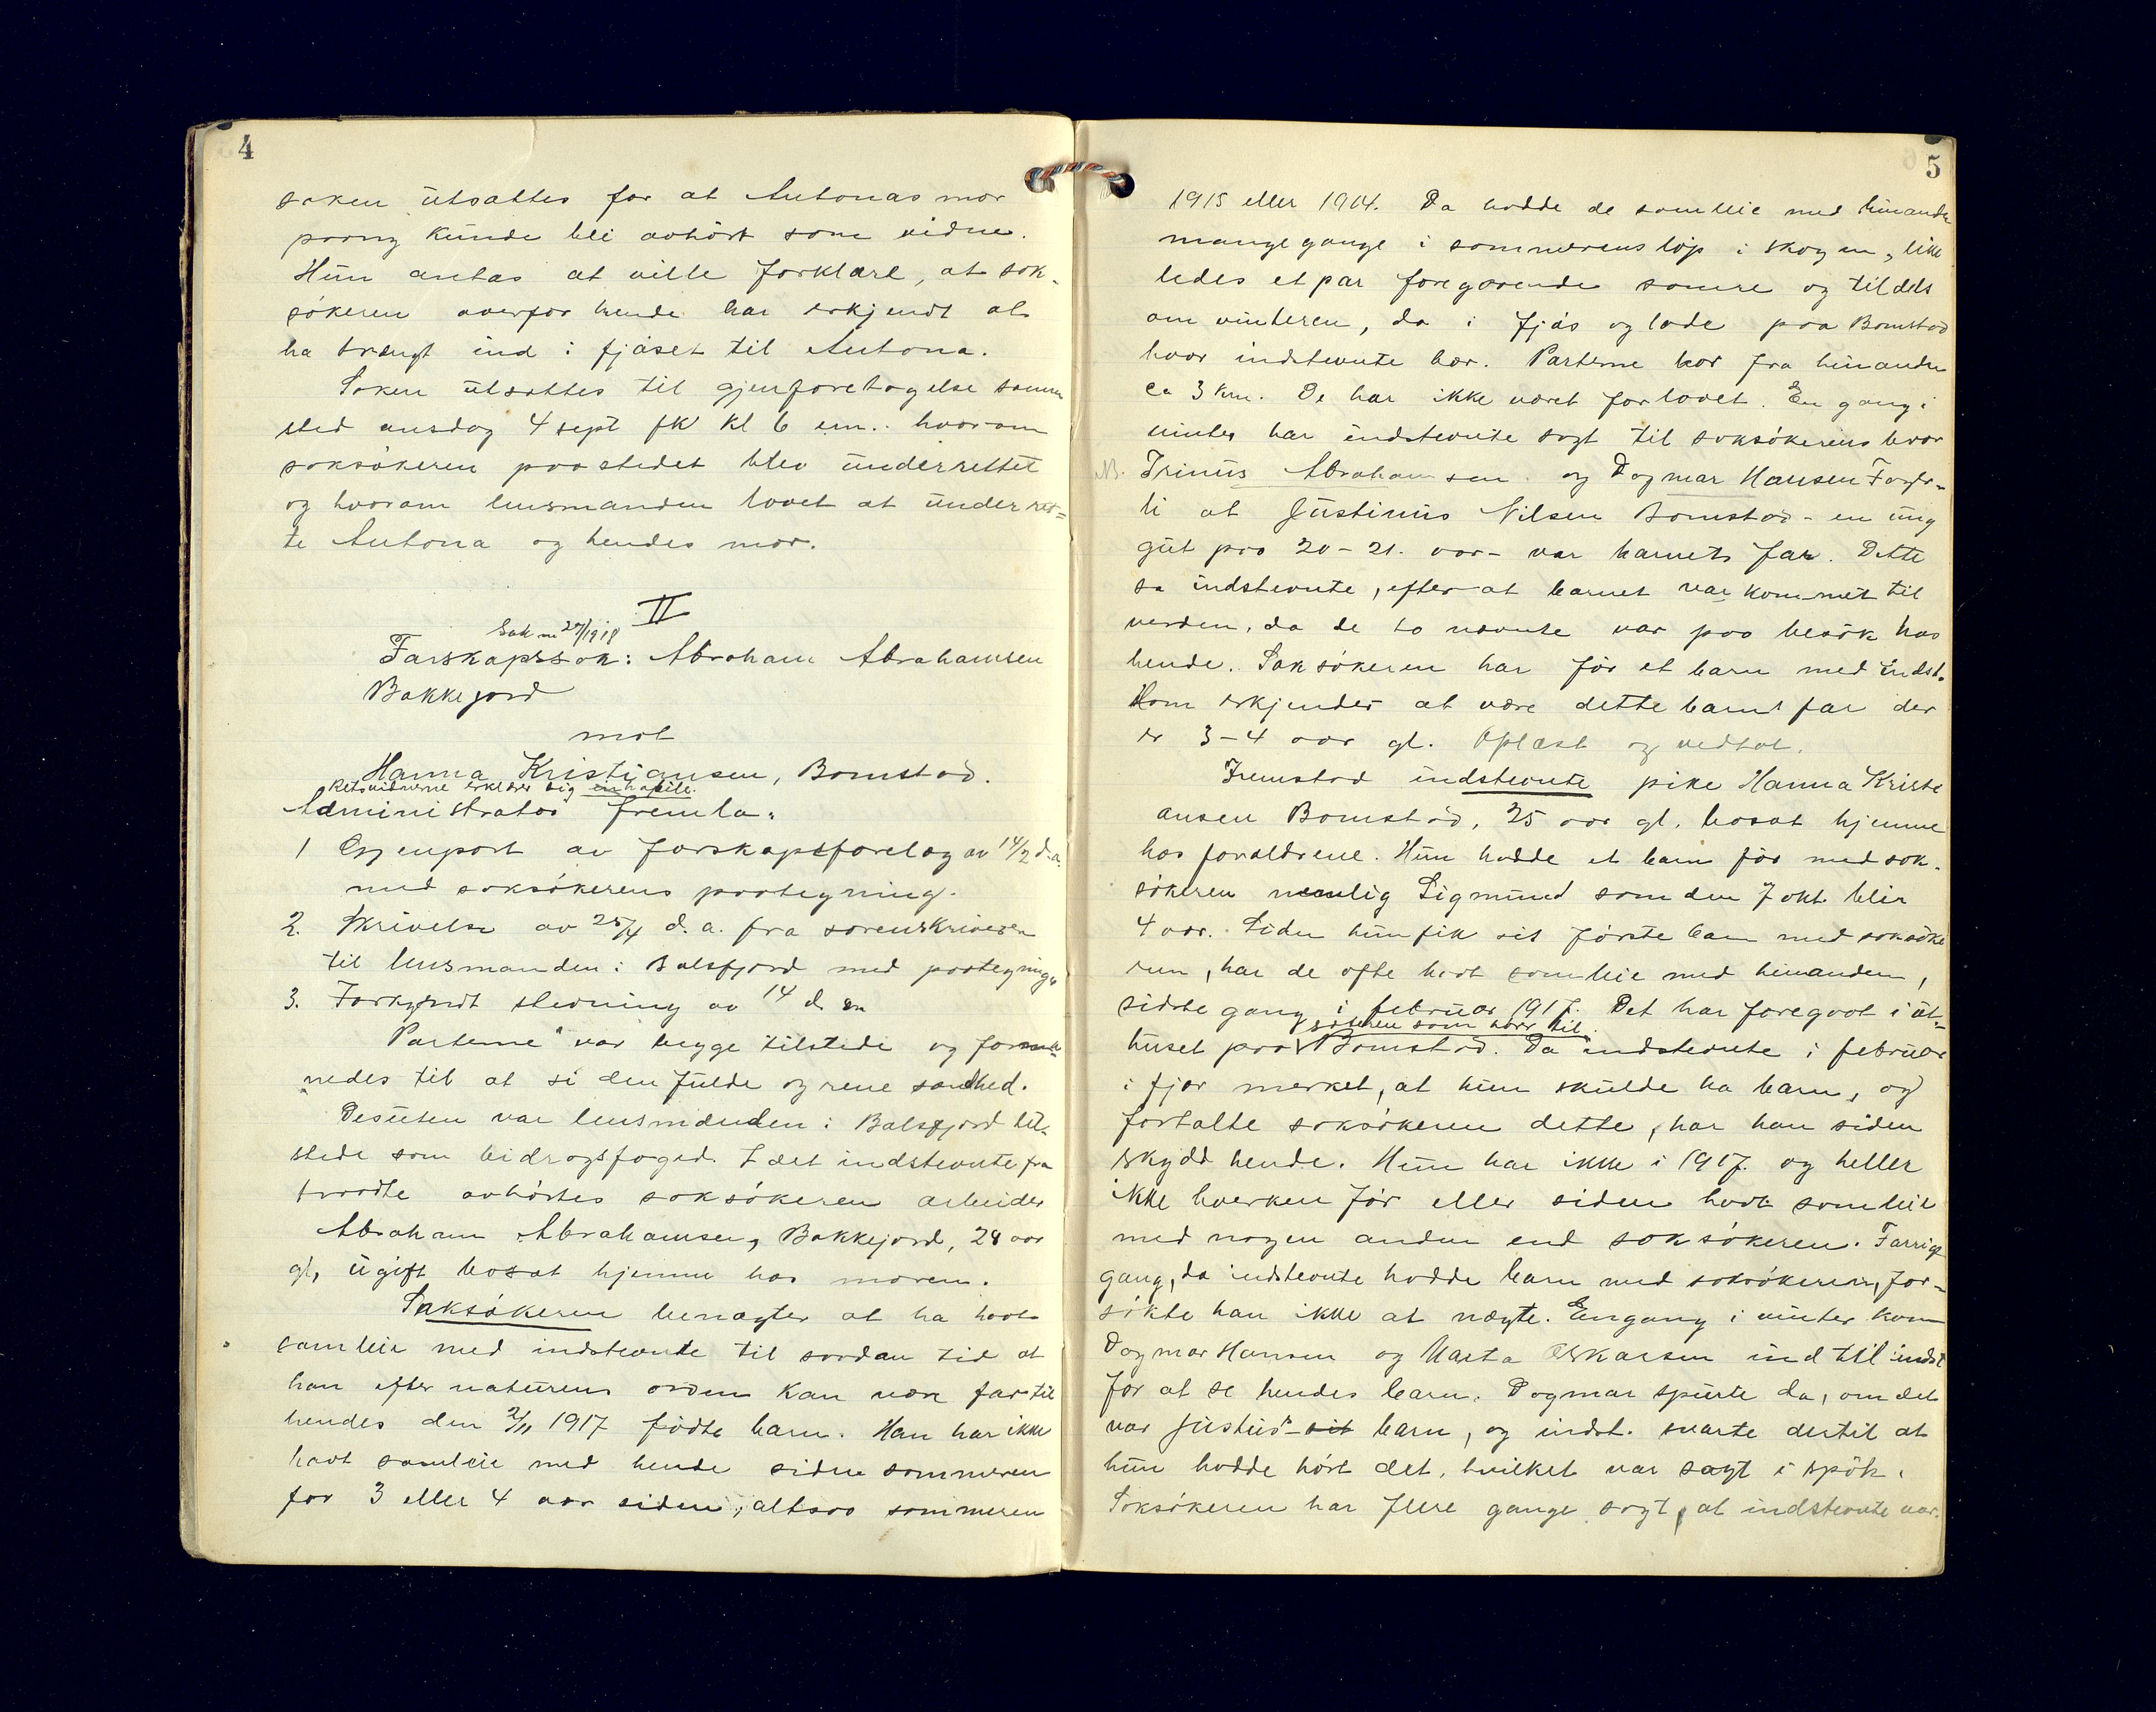 4
saken utsattes for at Antonas mor
paany kunde bli avhört som vidne.
Hun antas at ville forklare, at sak-
søkeren overfor hende har erkjendt at
ha trængt ind i fjøset til Antona.
Saken utsattes til gjenforetagelse samme
sted onsdag 4 sept fk kl 6 em. hvorom
saksøkeren paa stedet blev underrettet
og hvorom lensmanden lovet at underret=
te Antona og hendes mor.
II
Sak nr 27/1918
Farskapssak: Abraham Abrahamsen
Bakkejord
mot
Hanna Kristiansen, Bomstad.
Retsvidnerne erklærer sig inhabile.
Administrator fremla:
1 Gjenpart av farskapsforelæg av 14/2 d.a.
med saksøkerens paategning.
2. Skrivelse av 25/4 d. a. fra sorenskriveren
til lensmanden i Balsfjord med paategninger
3. Forkyndt stevning av 14 d. m
Parterne var begge tilstede og forma-
nedes til at si den fulde og rene sandhed.
Desuten var lensmanden i Balsfjord til-
stede som bidragsfoged. I det indstevnte fra
traadte avhørtes saksøkeren arbeider
Abraham Abrahamsen, Bakkejord, 28 aar
gl, ugift bosat hjemme hos moren.
Saksøkeren benægter at ha havt
samleie med indstevnte til saadan tid at
han efter naturens orden kan være far til
hendes den 2/11 1917 fødte barn. Han har ikke
havt samleie med hende siden sommeren
for 3 eller 4 aar siden, altsaa sommeren
5
1915 eller 1914. Da hadde de samleie med hinanden
mange gange i sommerens løp i skogen, like
ledes et par foregaaende somre og tildels
om vinteren, da i fjøs og lade paa Bomstad
hvor indstevnte bor. Parterne bor fra hinanden
ca 3 km. De har ikke været forlovet. En gang i
vinter har indstevnte sagt til saksøkerens bror
NB. Trinus Abrahamsen og Dagmar Hansen Fagr-
li at Justinus Nilsen Bomstad - en ung
gut paa 20-21 aar - var barnets far. Dette
sa indstevnte, efter at barnet var kommet til
verden, da de to nævnte var paa besøk hos
hende. Saksøkeren har før et barn med indst.
Han erkjender at være dette barns far der
er 3-4 aar gl. Oplæst og vedtat.
Fremstod indstevnte pike Hanna Kristi
ansen Bomstad, 25 aar gl. bosat hjemme
hos forældrene. Hun hadde et barn før med sak-
søkeren nemlig Sigmund som den 7 okt. blir
4 aar. Siden hun fik sit første barn med saksøke
ren, har de ofte havt samleie med hinanden,
sidste gang i februar 1917. Det har foregaat i ut-
søteren som hører til
huset paa Bomstad. Da indstevnte i februar
i fjor merket, at hun skulde ha barn, og
fortalte saksøkeren dette, har han siden
skydd hende. Hun har ikke i 1917 og heller
ikke hverken før eller siden havt samleie
med nogen anden end saksøkeren. Forrige
gang, da indstevnte hadde barn med saksøkeren, for-
søkte han ikke at nægte. Engang i vinter kom
Dagmar Hansen og Marta Oskarsen ind til indst
for at se hendes barn. Dagmar spurte da, om det
var Justius' sit barn, og indst. svarte dertil at
hun hadde hørt det, hvilket var sagt i spøk.
Saksøkeren har flere gange sagt, at indstevnte var